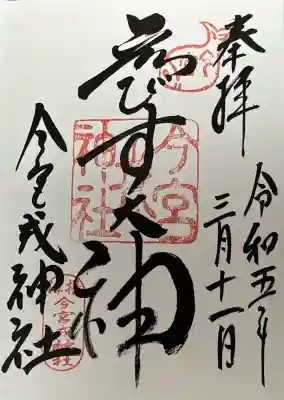 奉拝
令和五年
三月十一日
ゑびす大神
今宮戎神社
今宮
神社